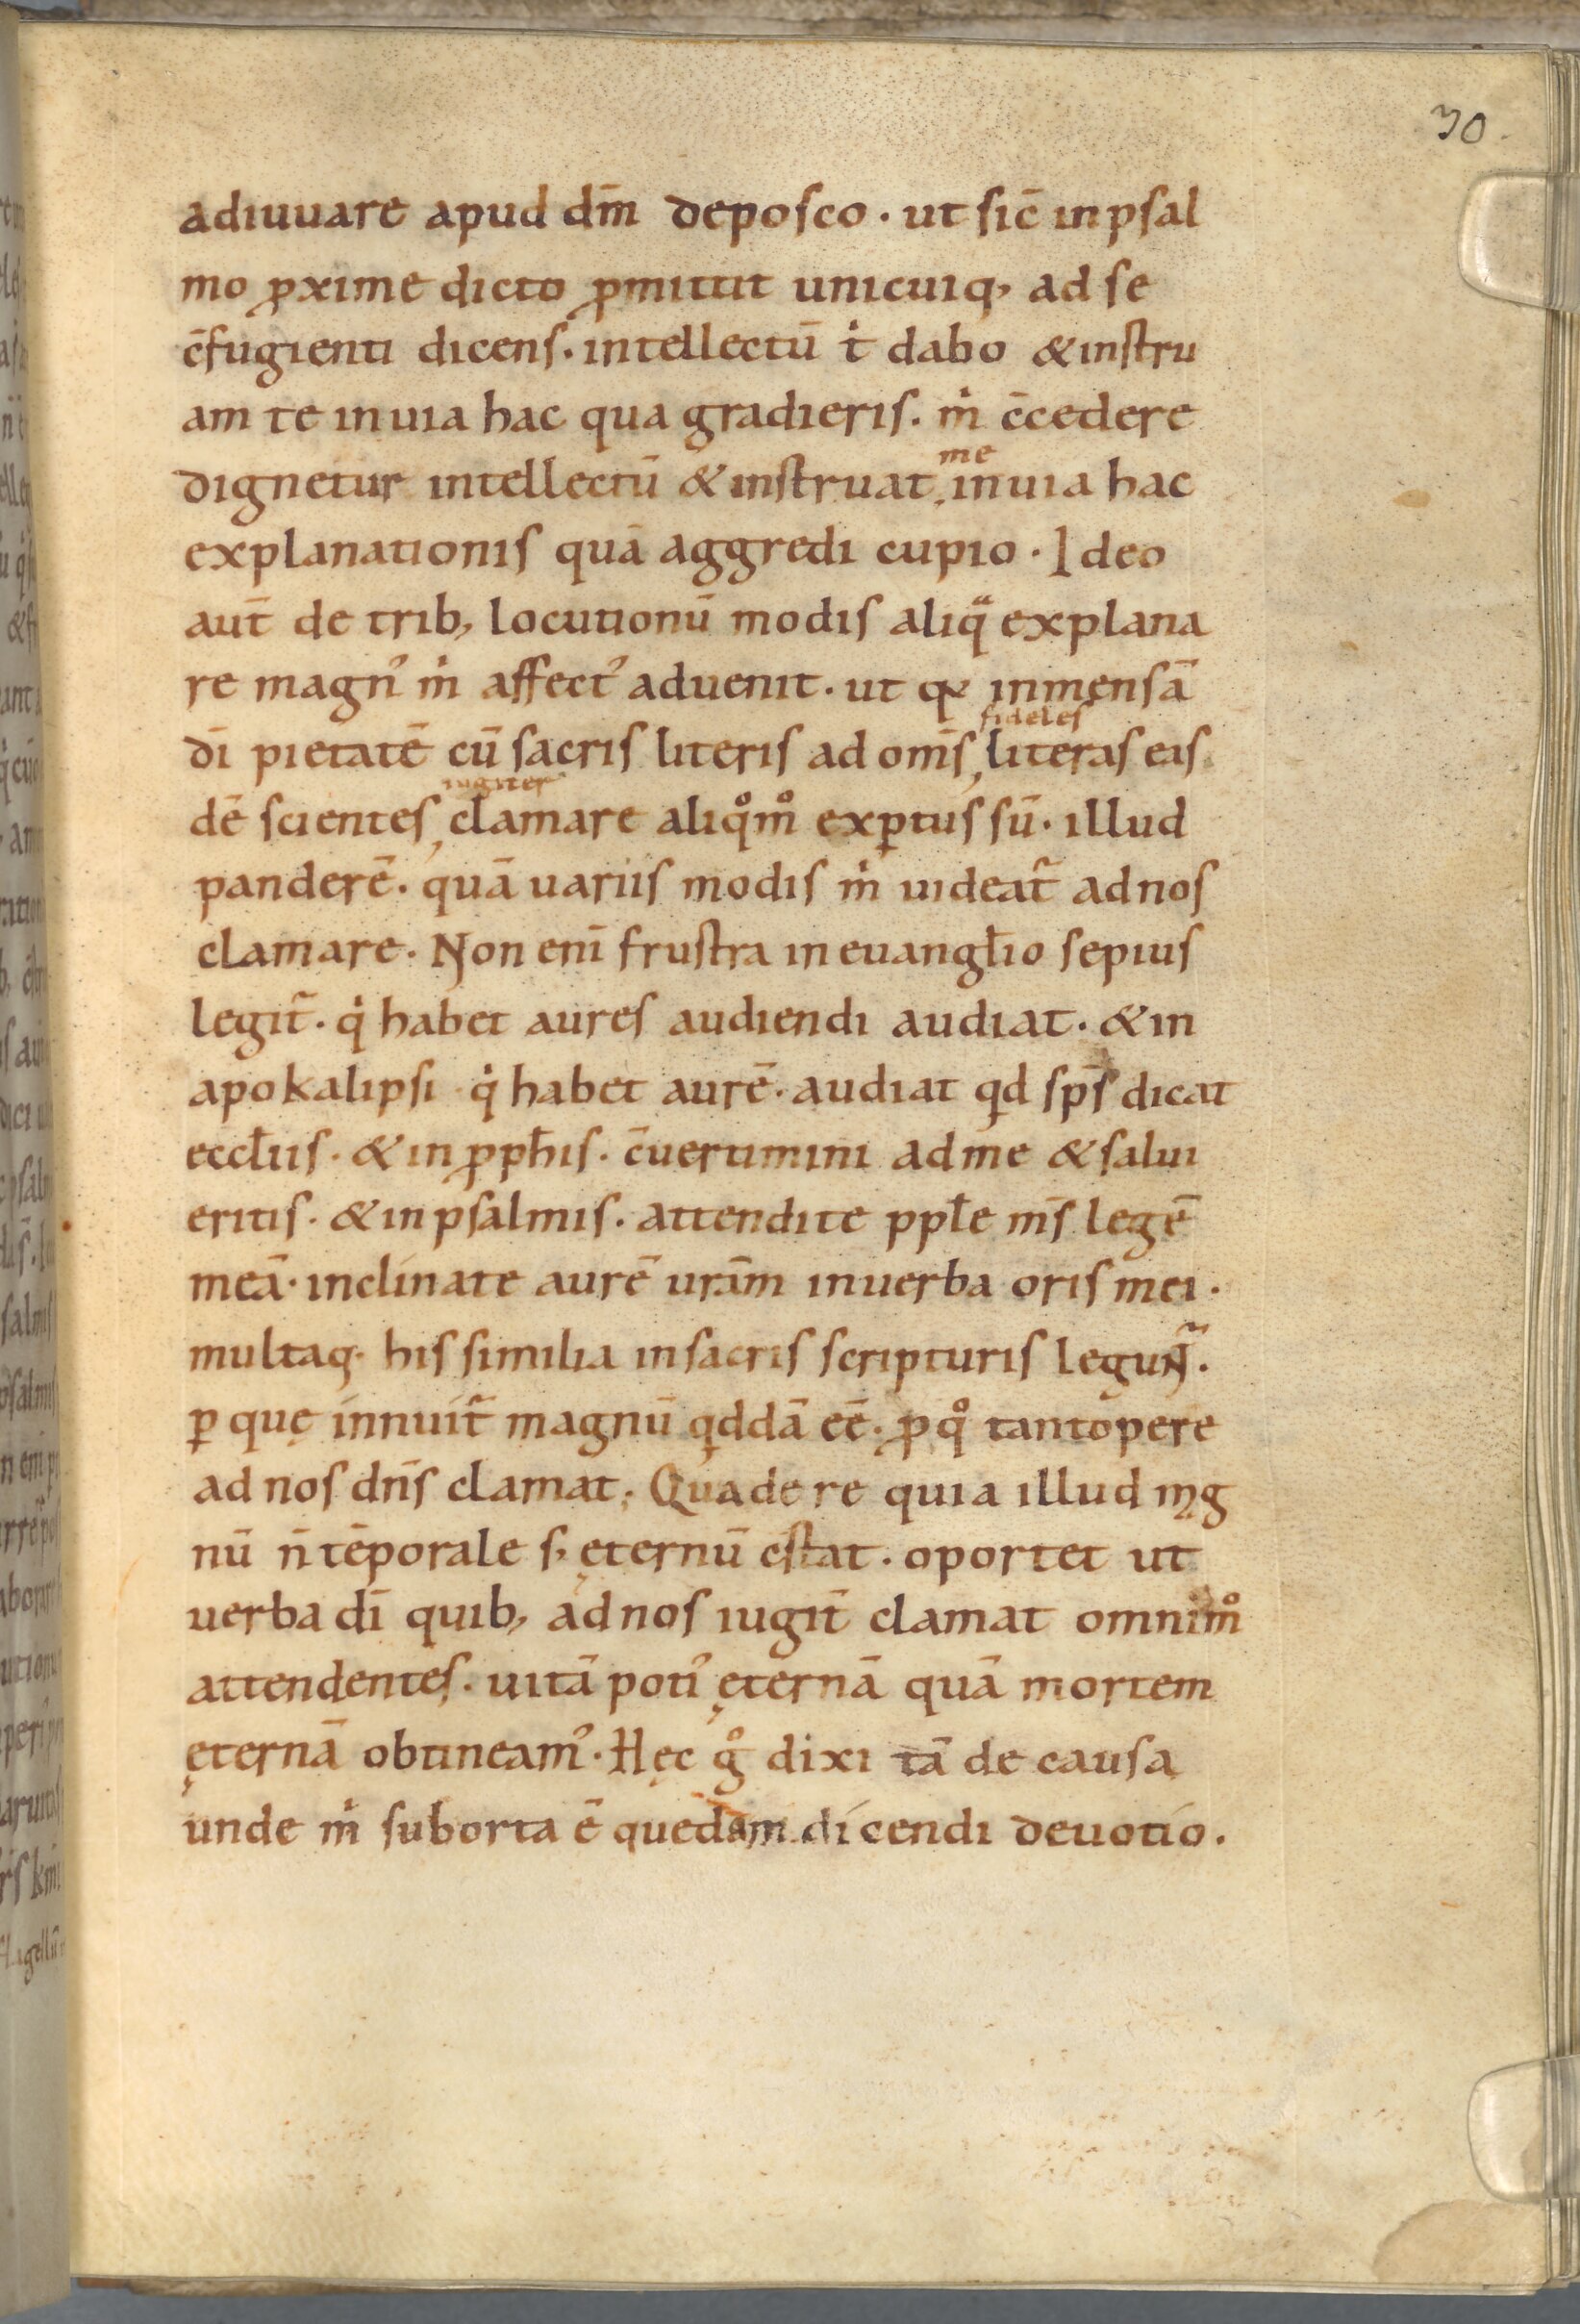 30
adiuuare apud dm̄ deposco · ut sic̄ in psal
mo ꝓxime dicto ꝓmittit unicuiq, ad se
c̄fugienti dicens · intellectū t̍ dabo & instru
am te in uia hac qua gradieris · m̍ c̄cedere
me
dignetur intellectū & instruat, in uia hac
explanationis quā aggredi cupio · Ideo
aut̄ de trib, locutionū modis aliq̄ explana
re magn᾽ m̍ affect᾽ aduenit · ut qꝫ inmensā
fideles
dī pietatē cū sacris literis ad om̄s, literas eis
iugiter
dē scientes, clamare aliqͦmͦ exꝑtus sū · illud
panderē · quā uariis modis m̍ uideat̃ ad nos
clamare · Non enī frustra in euangl̄io sepius
legit̃ · q̍ habet aures audiendi audiat · & in
apokalipsi · q̍ habet aurē · audiat qd sp̄s dicat
eccl̄iis · & in ꝓph̄is · c̄uertimini ad me & salui
eritis · & in psalmis · attendite ppl̄e m̄s legē
meā · inclinate aurē urām in uerba oris mei ·
multaq· his similia in sacris scripturis legun̄t̃ ·
ꝑ quę innuit̃ magnū qddā eē · ꝓ qͦ tantopere
ad nos dn̄s clamat · Qua de re quia illud mag
nū n̄ tēporale s, ęternū c̄stat · oportet ut
uerba dī quib, ad nos iugit̄ clamat omnimͦ
attendentes · uitā poti᾽ ęternā quā mortem
ęternā obtineam᾽ · Hęc gͦ dixi tā de causa
unde m̍ suborta ē quedam dicendi deuotio ·